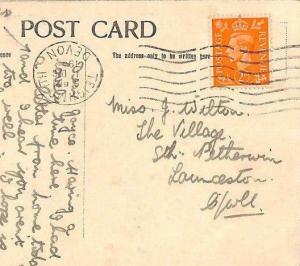 POST CARD
The address only to be written here
POSTAGE
REVENUE
DEVON
Miss J. Wilton.
The Village
Sth. Petherwin
Launceston.
C/wll
Joyce. Having a
time here. I had
letter from home today
and I hear you aren't
too well.